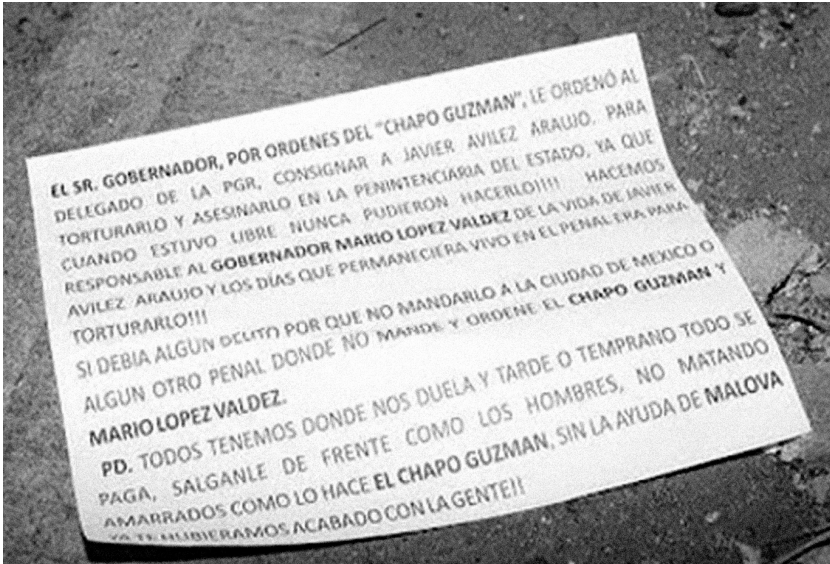 EL SR. GOBERNADOR, POR ORDENES DEL "CHAPO GUZMAN", LE ORDENÓ AL
DELEGADO DE LA PGR, CONSIGNAR A JAVIER AVILEZ ARAUJO, PARA
TORTURARLO Y ASESINARLO EN LA PENINTENCIARIA DEL ESTADO, YA QUE
CUANDO ESTUVO LIBRE NUNCA PUDIERON HACERLO!!!! HACEMOS
RESPONSABLE AL GOBERNADOR MARIO LOPEZ VALDEZ DE LA VIDA DE JAVIER
AVILEZ ARAUJO Y LOS DÍAS QUE PERMANECIERA VIVO EN EL PENAL ERA PARA
TORTURARLO!!!
SI DEBIA ALGUN DELITO POR QUE NO MANDARLO A LA CIUDAD DE MEXICO O
ALGUN OTRO PENAL DONDE NO MANDE Y ORDENE EL CHAPO GUZMAN Y
MARIO LOPEZ VALDEZ.
PD. TODOS TENEMOS DONDE NOS DUELA Y TARDE O TEMPRANO TODO SE
PAGA, SALGANLE DE FRENTE COMO LOS HOMBRES, NO MATANDO
AMARRADOS COMO LO HACE EL CHAPO GUZMAN, SIN LA AYUDA DE MALOVA
YA TE HUBIERAMOS ACABADO CON LA GENTE!!